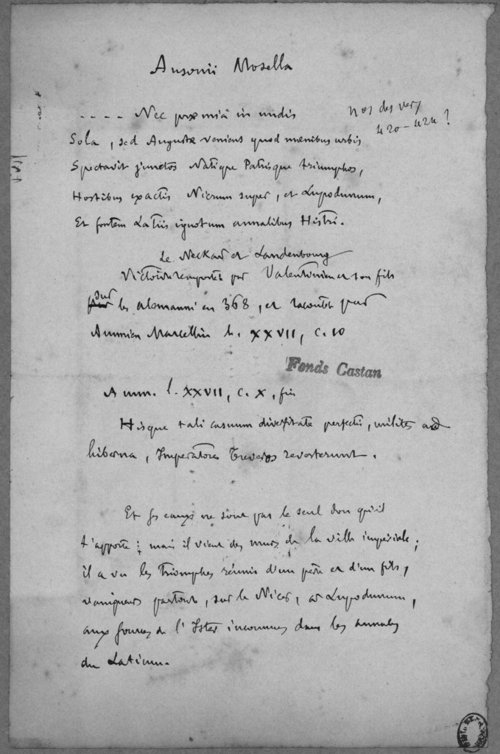 Ausonii Mosella
.... Nec præmia in undis
Nos des vers
420-424 ?
Sola, sed Augusta veniens quod mœnibus urbis
Spectavit junctos Natique Patrisque triumphos,
Hostibus exactis Nicrum super, et Lupodunum,
Et fontem Latiis ignotum annalibus Histri.
Le Neckar et Landenbourg
Victoire remportée par Valentinien et son fils
sur les alemanni en 368, et racontée par
Ammien Marcellin l. XXVII, c. 10
Fonds Castan
Amm. l. XXVII, c. X, fin
Hisque tali casuum diversitate perfectis, milites ad
hiberna, Imperatores Treveros reverterunt.
Et ses eaux ne sont pas le seul don qu'il
t'apporte ; mais il vient des murs de la ville impériale ;
il a vu les Triomphes réunis d'un père et d'un fils,
vainqueurs partout, sur le Nicer, et Lupodunum,
aux sources de l'Ister inconnues dans les annales
du Latium.